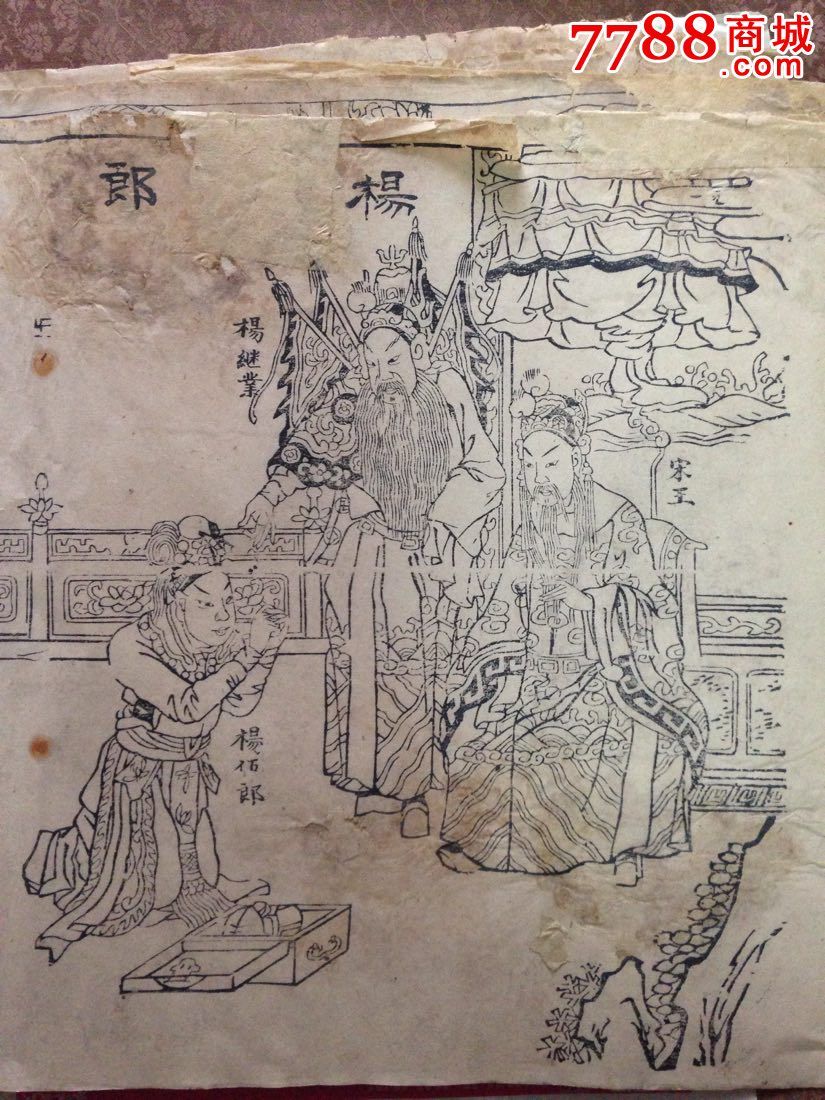 7788商城
.com
楊 郎
楊継業
宋王
楊佰郎